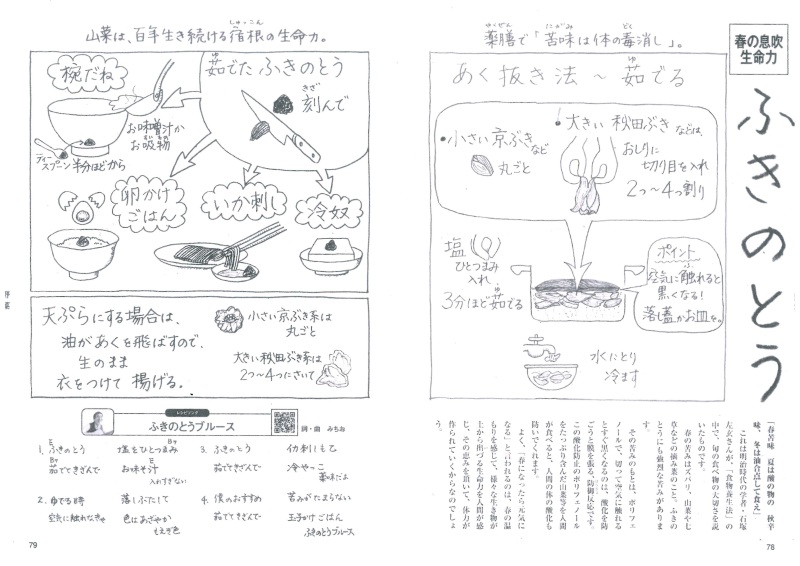 春の息吹
生命力
ふきのとう
薬膳で「苦味は体の毒消し」。
やくぜん
にがみ
どく
あく抜き法～茹でる
ゆ
・小さい京ぶきなど
丸ごと
・大きい秋田ぶきなどは、
おしりに
切り目を入れ
2つ～4つ割り
塩
ひとつまみ
入れ
3分ほど茹でる
ゆ
ポイント
空気に触れると
ふ
黒くなる!
落し蓋かお皿を。
水にとり
冷ます
「春苦味、夏は酸の物の、秋辛
味、冬は油合点して食え」
これは明治時代の学者・石塚
左玄さんが、「食物養生法」の
中で、旬の食べ物の大切さを説
いたものです。
春の苦みはズバリ、山菜や七
草などの摘み菜のこと。ふきの
とうにも強烈な苦みがありま
す。
その苦みのもとは、ポリフェ
ノールで、切って空気に触れる
とすぐ黒くなるのは、酸化を防
ごうと膜を張る「防御反応」です。
この酸化防止のポリフェノール
をたっぷり含んだ山菜等を人間
が食べると、人間の体の酸化も
防いでくれます。
よく、「春になったら元気に
なる」と言われるのは、春の温
もりを感じて、様々な生き物が
土から出づる生命力を人間が感
じ、その恵みを頂いて、体力が
作られていくからなのでしょ
う。
78
山菜は、百年生き続ける宿根の生命力。
しゅっこん
茹でたふきのとう
ゆ
刻んで
きざ
椀だね
お味噌汁か
お吸物
ティー
スプーン半分ほどから
卵かけ
ごはん
いか刺し
冷奴
天ぷらにする場合は、
油があくを飛ばすので、
生のまま
衣をつけて揚げる。
小さい京ぶき系は
丸ごと
大きい秋田ぶき系は
2つ～4つにさいて
レシピソング
ふきのとうブルース
詞・曲 みちお
1. ふきのとう 塩をひとつまみ
茹でてきざんで お味そ汁
入れすぎない
2. ゆでる時 落しぶたして
空気に触れなきゃ 色はあざやか
もえぎ色
3. ふきのとう イカ刺しもご
茹でてきざんで 冷やっこ
薬味だよ
4. 僕のおすすめ 苦みがたまらない
茹でてきざんで 玉子かけごはん
ふきのとうブルース
79